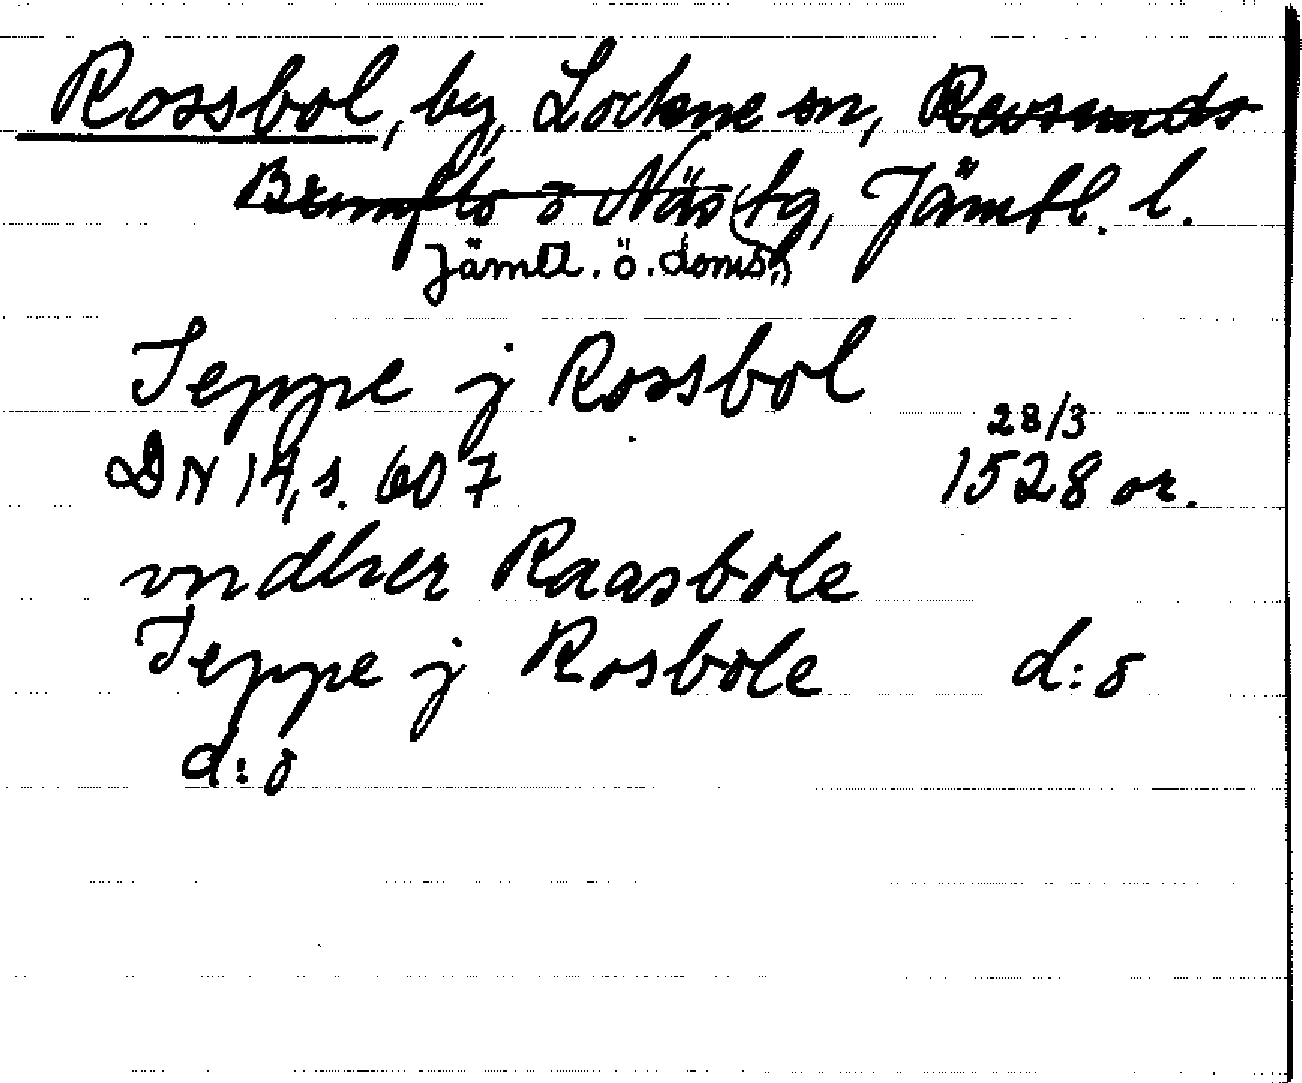 Rossbol, by, Lockne sn, Revsunds
Brunflo o Näs tg, Jämtl. l.
Jämtl. ö. doms.
Jeppe j Rossbol
28/3
DN 14, s. 607 1528 or.
vndher Raasbole
Jeppe j Rosbole d:o
d:o